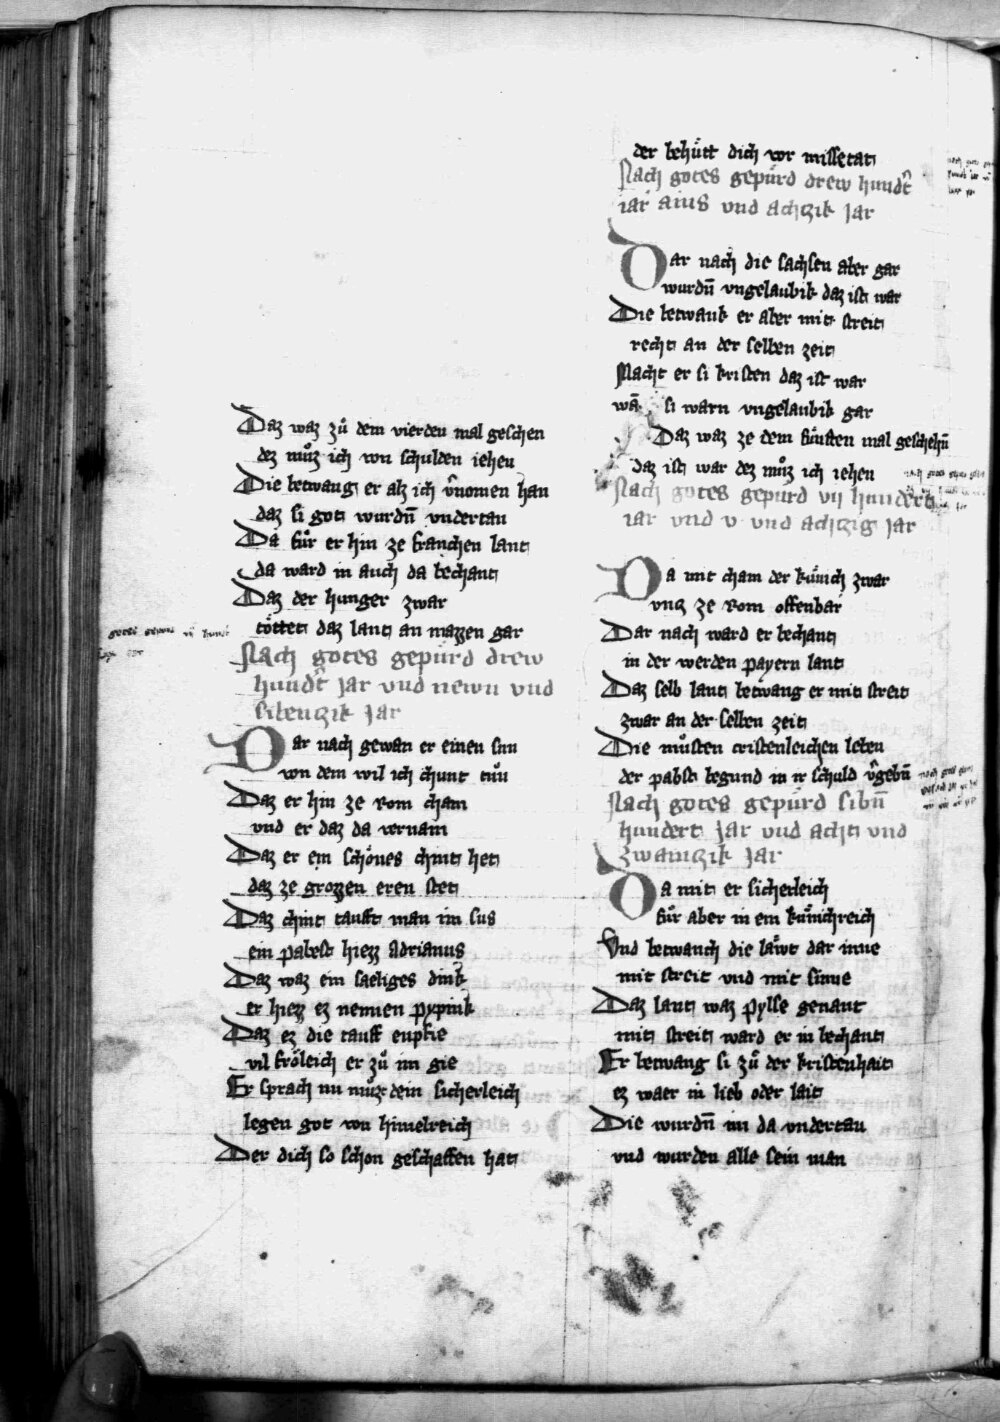 Daz waz zů dem vierden mal geschen
dez můz ich von schulden iehen
Die betwang er alz ich v̄nomen han
daz si got wurdn̄ vndertan
Da fůr er hin ze franchen lant
da ward in auch da bechant
Daz der hunger zwar
töttet daz lant an mazzen gar
Nach gotes gepürd drew
hundt̄ jar vnd newn vnd
sibenczik jar
Dar nach gewan er einen sun
von dem wil ich chunt tůn
Daz er hin ze Rom cham
vnd er daz da vernam
Daz er ein schönes chint het
daz ze grozzen eren stet
Daz chint taufft man im sus
ein pabest hiezz Adrianus
Daz waz ein saeliges dink
er hiezz ez nennen pypink
Daz ez die tauff enpfie
vil frőleich er zů im gie
Er sprach nu můz dein sicherleich
legen got von himelreich
Der dich so schon geschaffen hat
der behůtt dich vor missetat
Nach gotes gepürd drew hundt̄
iar ains vnd achczik jar
Dar nach die sachsen aber gar
wurdn̄ vngelaubik daz ist war
Die betwank er aber mit streit
recht an der selben zeit
Macht er si kristen daz ist war
wā si warn vngelaubik gar
Daz waz ze dem fünften mal geschehn̄
daz ist war dez můz ich iehen
Nach gotes gepurd vij hundert
iar vnd v vnd achczig jar
Da mit cham der künich zwar
vncz ze Rom offenbar
Dar nach ward er bechant
in der werden payern lant
Daz selb lant betwang er mit streit
zwar an der selben zeit
Die můsten cristenleichen leben
der pabst begund in ir schuld v̄gebn̄
Nach gotes gepürd sibn̄
hundert jar vnd acht vnd
zwainczik jar
Da mit er sicherleich
fůr aber in ein künichreich
Vnd betwanch die läwt dar inne
mit streit vnd mit sinne
Daz lant waz pylse genant
mit streit ward er in bechant
Er betwang si zů der kristenhait
ez waer in lieb oder lait
Die wurdn̄ im da vndertan
vnd wurden alle sein man